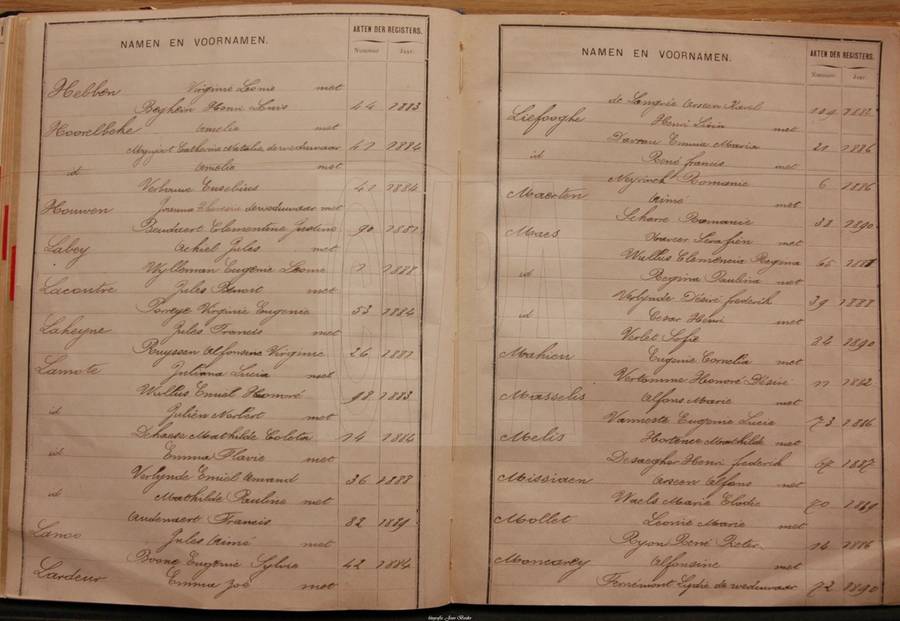 NAMEN EN VOORNAMEN. AKTEN DER REGISTERS.
Nummer Jaar
Hebben Virginie Leonie met
Beghein Henri Louis 44 1883
Hoorelbeke Amelia met
Catherina Natalia de weduwaar 41 1884
id Amelia met
Verbauwe Eusebius 41 1884
Houwen Joanna de weduwaar met
Clementine Justine 90 1881
Labey Achiel Jules met
Wylleman Eugenie Leonie 1 1888
Lacontre Jules Benoit met
Porreye Virginie Eugenie 53 1884
Laheyne Jules Francis met
Ruyssen Alfonsine Virginie 26 1881
Lamote Juliana Lucia met
Wullus Emiel Honoré 98 1883
id Julien Norbert met
Dehaese Mathilde Coleta 14 1884
id Emma Flavie met
Verlynde Emiel Amand 36 1888
id Mathilde Pauline met
Audenaert Francis 82 1889
Lanoo Jules Aimé met
Boone Eugenie Sylvie 42 1884
Lardeur Emma Zoé met
NAMEN EN VOORNAMEN. AKTEN DER REGISTERS.
Nummer Jaar
de Langhe Arseen Karel 109 1882
Liefooghe Henri Livin met
Emma Maria 21 1886
id René francis met
Neyrinck Romanie 6 1886
Maerten Aimé met
Scharre Romanie 38 1890
Maes Serafien met
Wullus Clemencia Regina 65 1881
id Regina Paulina met
Verlynde Désiré frederik 39 1888
id Cesar Henri met
Verlet Sofie 24 1890
Mahieu Eugenie Cornelia met
Honoré Désiré 11 1882
Masselis Alfons Marie met
Vanneste Eugenie Lucie 73 1886
Melis Hortence Mathilde met
Desaegher Henri frederik 67 1887
Missiaen Arseen Alfons met
Waels Marie Elodie 70 1889
Mollet Leonie Marie met
Ryon René Pieter 14 1886
Moncarey Alfonsine met
Ferremont Lydie de weduwaar 72 1890